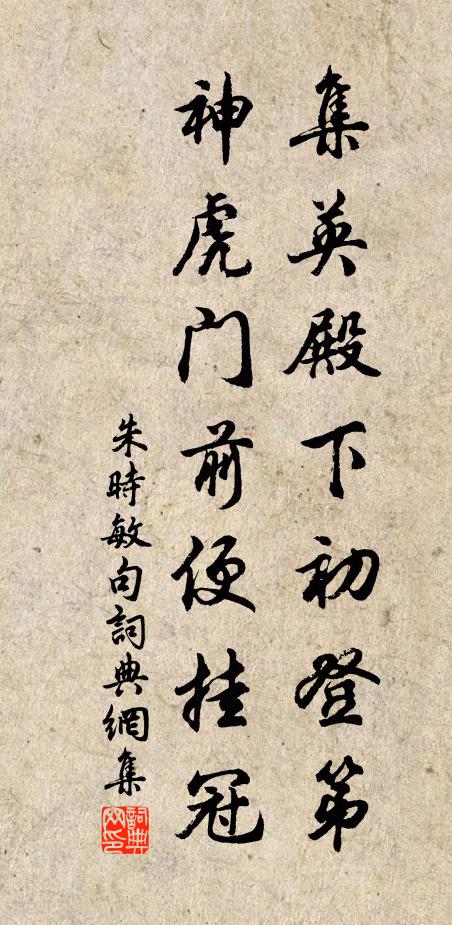 集英殿下初登第
神虎门前便挂冠
朱時敏句詞典網集
詞典网印